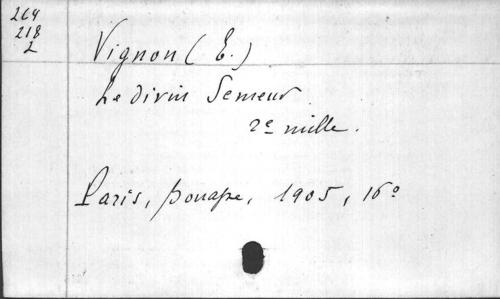 264
218
2
Vignon (E.)
Le divin Semeur
2e mille.
Paris, 1905, 16o